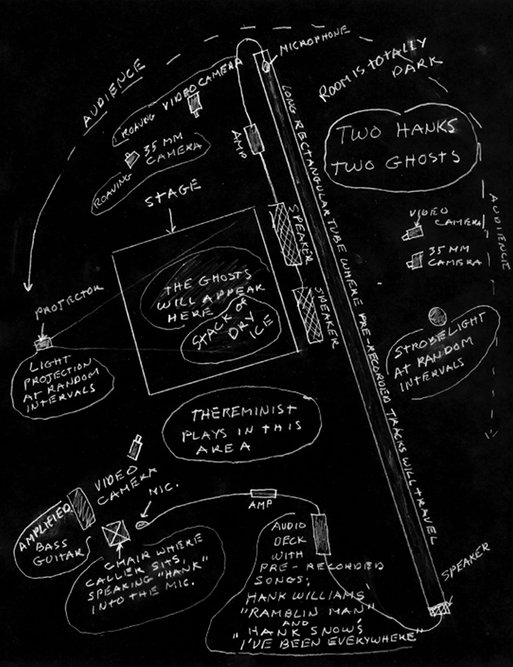 MICROPHONE
AUDIENCE
ROOM IS TOTALLY
DARK
ROAVING VIDEO CAMERA
35 MM
CAMERA
ROAVING
AMP
LONG RECTANGULAR TUBE WHERE PRE-RECORDED TRACKS WILL TRAVEL
TWO HANKS
TWO GHOSTS
STAGE
AUDIENCE
VIDEO
CAMERA
35 MM
CAMERA
SPEAKER
SPEAKER
THE GHOSTS
WILL APPEAR
HERE
STACK OF
DRY
ICE
PROJECTOR
LIGHT
PROJECTION
AT RANDOM
INTERVALS
STROBELIGHT
AT RANDOM
INTERVALS
THEREMINIST
PLAYS IN THIS
AREA
VIDEO
CAMERA
MIC.
AMP
AMPLIFIED
BASS
GUITAR
CHAIR WHERE
CALLER SITS,
SPEAKING "HANK"
INTO THE MIC.
AUDIO
DECK
WITH
PRE-RECORDED
SONGS;
HANK WILLIAMS'
"RAMBLIN MAN"
AND
"HANK SNOW'S
I'VE BEEN EVERYWHERE"
SPEAKER